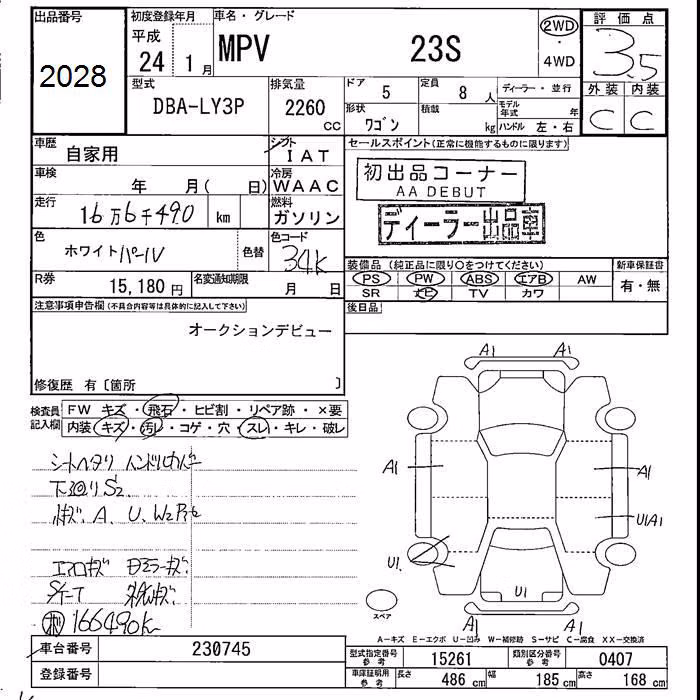 出品番号
2028
初度登録年月
平成
24 1月
車名・グレード
MPV 23S
2WD
・
4WD
評価点
3.5
外装 内装
C C
型式
DBA-LY3P
排気量
2260
cc
ドア 5
定員 8 人
形状
ワゴン
積載
kg
ディーラー・並行
モデル
年式 年
ハンドル 左・右
車歴
自家用
シフト
IAT
車検
年 月( 日)
冷房
WAAC
走行
16万6千490 km
燃料
ガソリン
色
ホワイトパール
色替
色コード
34K
R券
15,180 円
名変通知期限
月 日
セールスポイント(正常に機能するものに限ります)
初出品コーナー
AA DEBUT
ディーラー出品車
装備品(純正品に限り○をつけてください)
PS PW ABS エアB AW
SR ナビ TV カワ
新車保証書
有・無
後日品
注意事項申告欄(不具合内容等は具体的に記入して下さい)
オークションデビュー
修復歴 有〔箇所 〕
検査員
記入欄
FW キズ・飛石・ヒビ割・リペア跡・×要
内装 キズ・汚レ・コゲ・穴・スレ・キレ・破レ
シートヘタリ ハンドル
下廻りS2
A、U、W2
エアロキズ ミラーキズ
166490K
A1 A1
A1 A1
U1A1
U1
U1
A1 A1
スペア
A-キズ E-エクボ U-凹み W-補修跡 S-サビ C-腐食 XX-交換済
車台番号
230745
登録番号
型式指定番号
参考
15261
類別区分番号
参考
0407
車庫証明用
参考
長さ 486 cm 幅 185 cm 高さ 168 cm